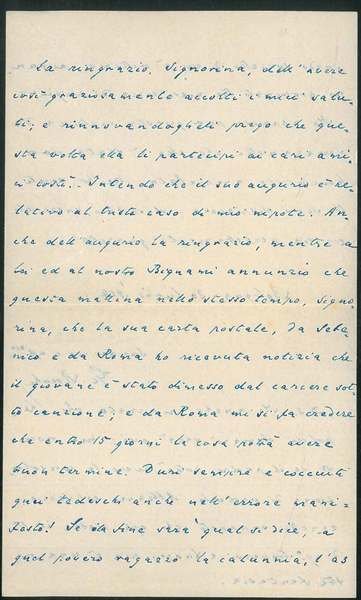 La ringrazio, Signorina, dell'avere
così graziosamente accolti i miei salu-
ti; e rinnovandoglieli prego che que-
sta volta ella li partecipi ai cari ami-
ci costì. Intendo che il suo augurio è re-
lativo al triste caso di mio nipote. An-
che dell'augurio la ringrazio, mentre a
lei ed al nostro Bignami annunzio che
questa mattina nello stesso tempo, Signo-
rina, che la sua carta postale, da Sebe-
nico e da Roma ho ricevuta notizia che
il giovane è stato dimesso dal carcere sot-
to cauzione; e da Roma mi si fa credere
che entro 15 giorni la cosa potrà avere
buon termine. Duri sempre e cocciuti
quei tedeschi anche nell'errore mani-
festo! Se la fine sarà qual si dice, a
quel povero ragazzo la calunnia, l'as